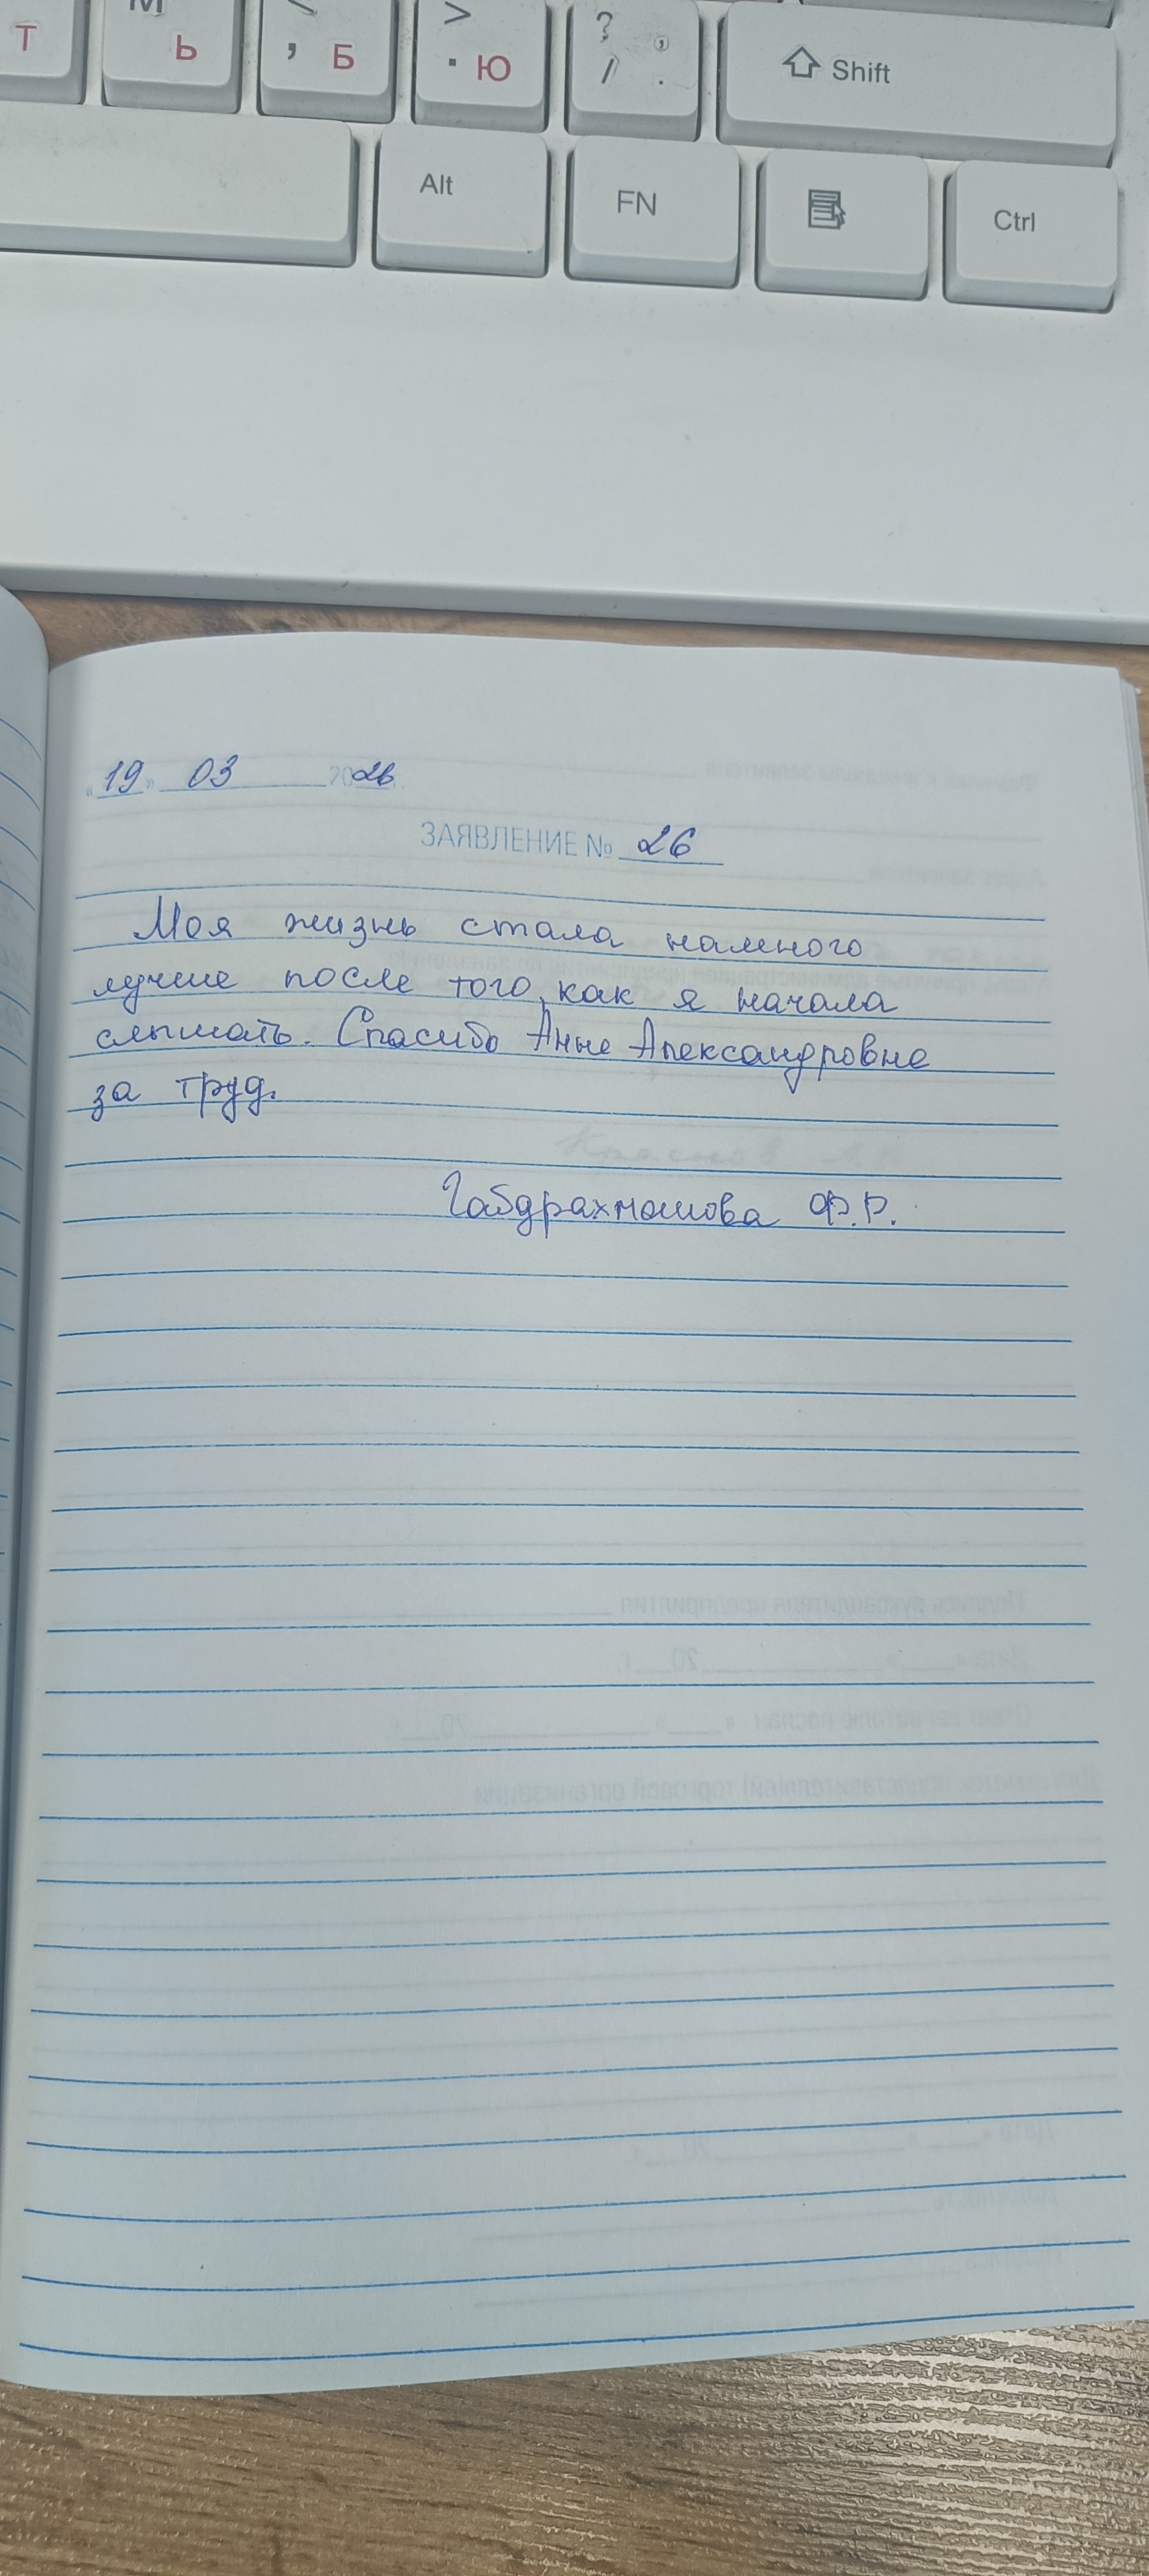 Т Ь , Б > . Ю ? / , . Shift
Alt FN Ctrl
«19» 03 2026г.
ЗАЯВЛЕНИЕ № 26
Моя жизнь стала намного
лучше после того, как я начала
слышать. Спасибо Анне Александровне
за труд.
Габдрахманова Ф.Р.